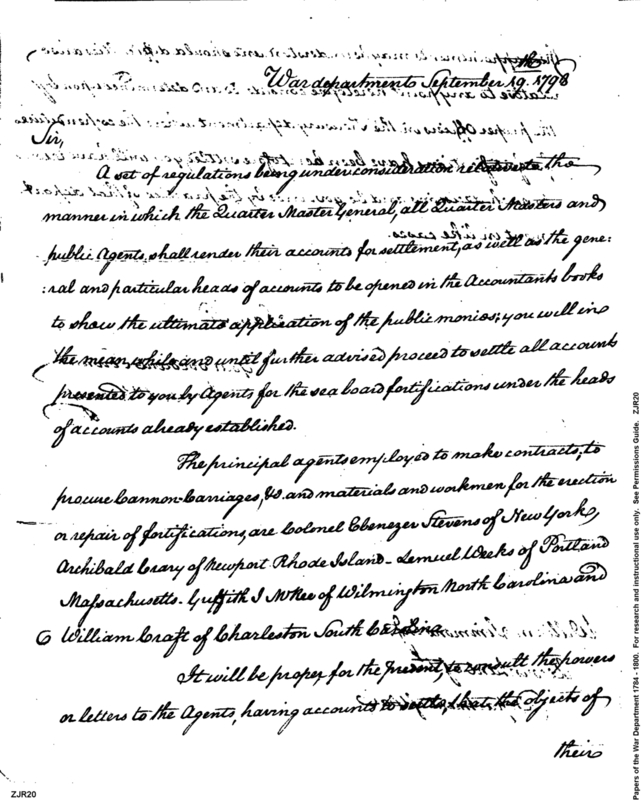 War department September 19. 1798
Sir,
A set of regulations being under consideration relative to the
manner in which the Quarter Master General, all Quarter Masters and
public Agents, shall render their accounts for settlement, as well as the gene:
:ral and particular heads of accounts to be opened in the Accountants books
to show the ultimate application of the public monies; you will in
the mean while and until further advised proceed to settle all accounts
presented to you by Agents for the sea board fortifications under the heads
of accounts already established.
The principal agents employed to make contracts, to
procure Cannon-Carriages, &c. and materials and workmen for the erection
or repair of fortifications, are Colonel Ebenezer Stevens of New York,
Archibald Crary of Newport Rhode Island - Lemuel Weeks of Portland
Massachusetts - Griffith J McRee of Wilmington North Carolina and
William Craft of Charleston South Carolina.
It will be proper for the present, to consult the powers
or letters to the Agents, having accounts to settle, that the objects of
their
ZJR20
Papers of the War Department 1784 - 1800. For research and instructional use only. See Permissions Guide. ZJR20